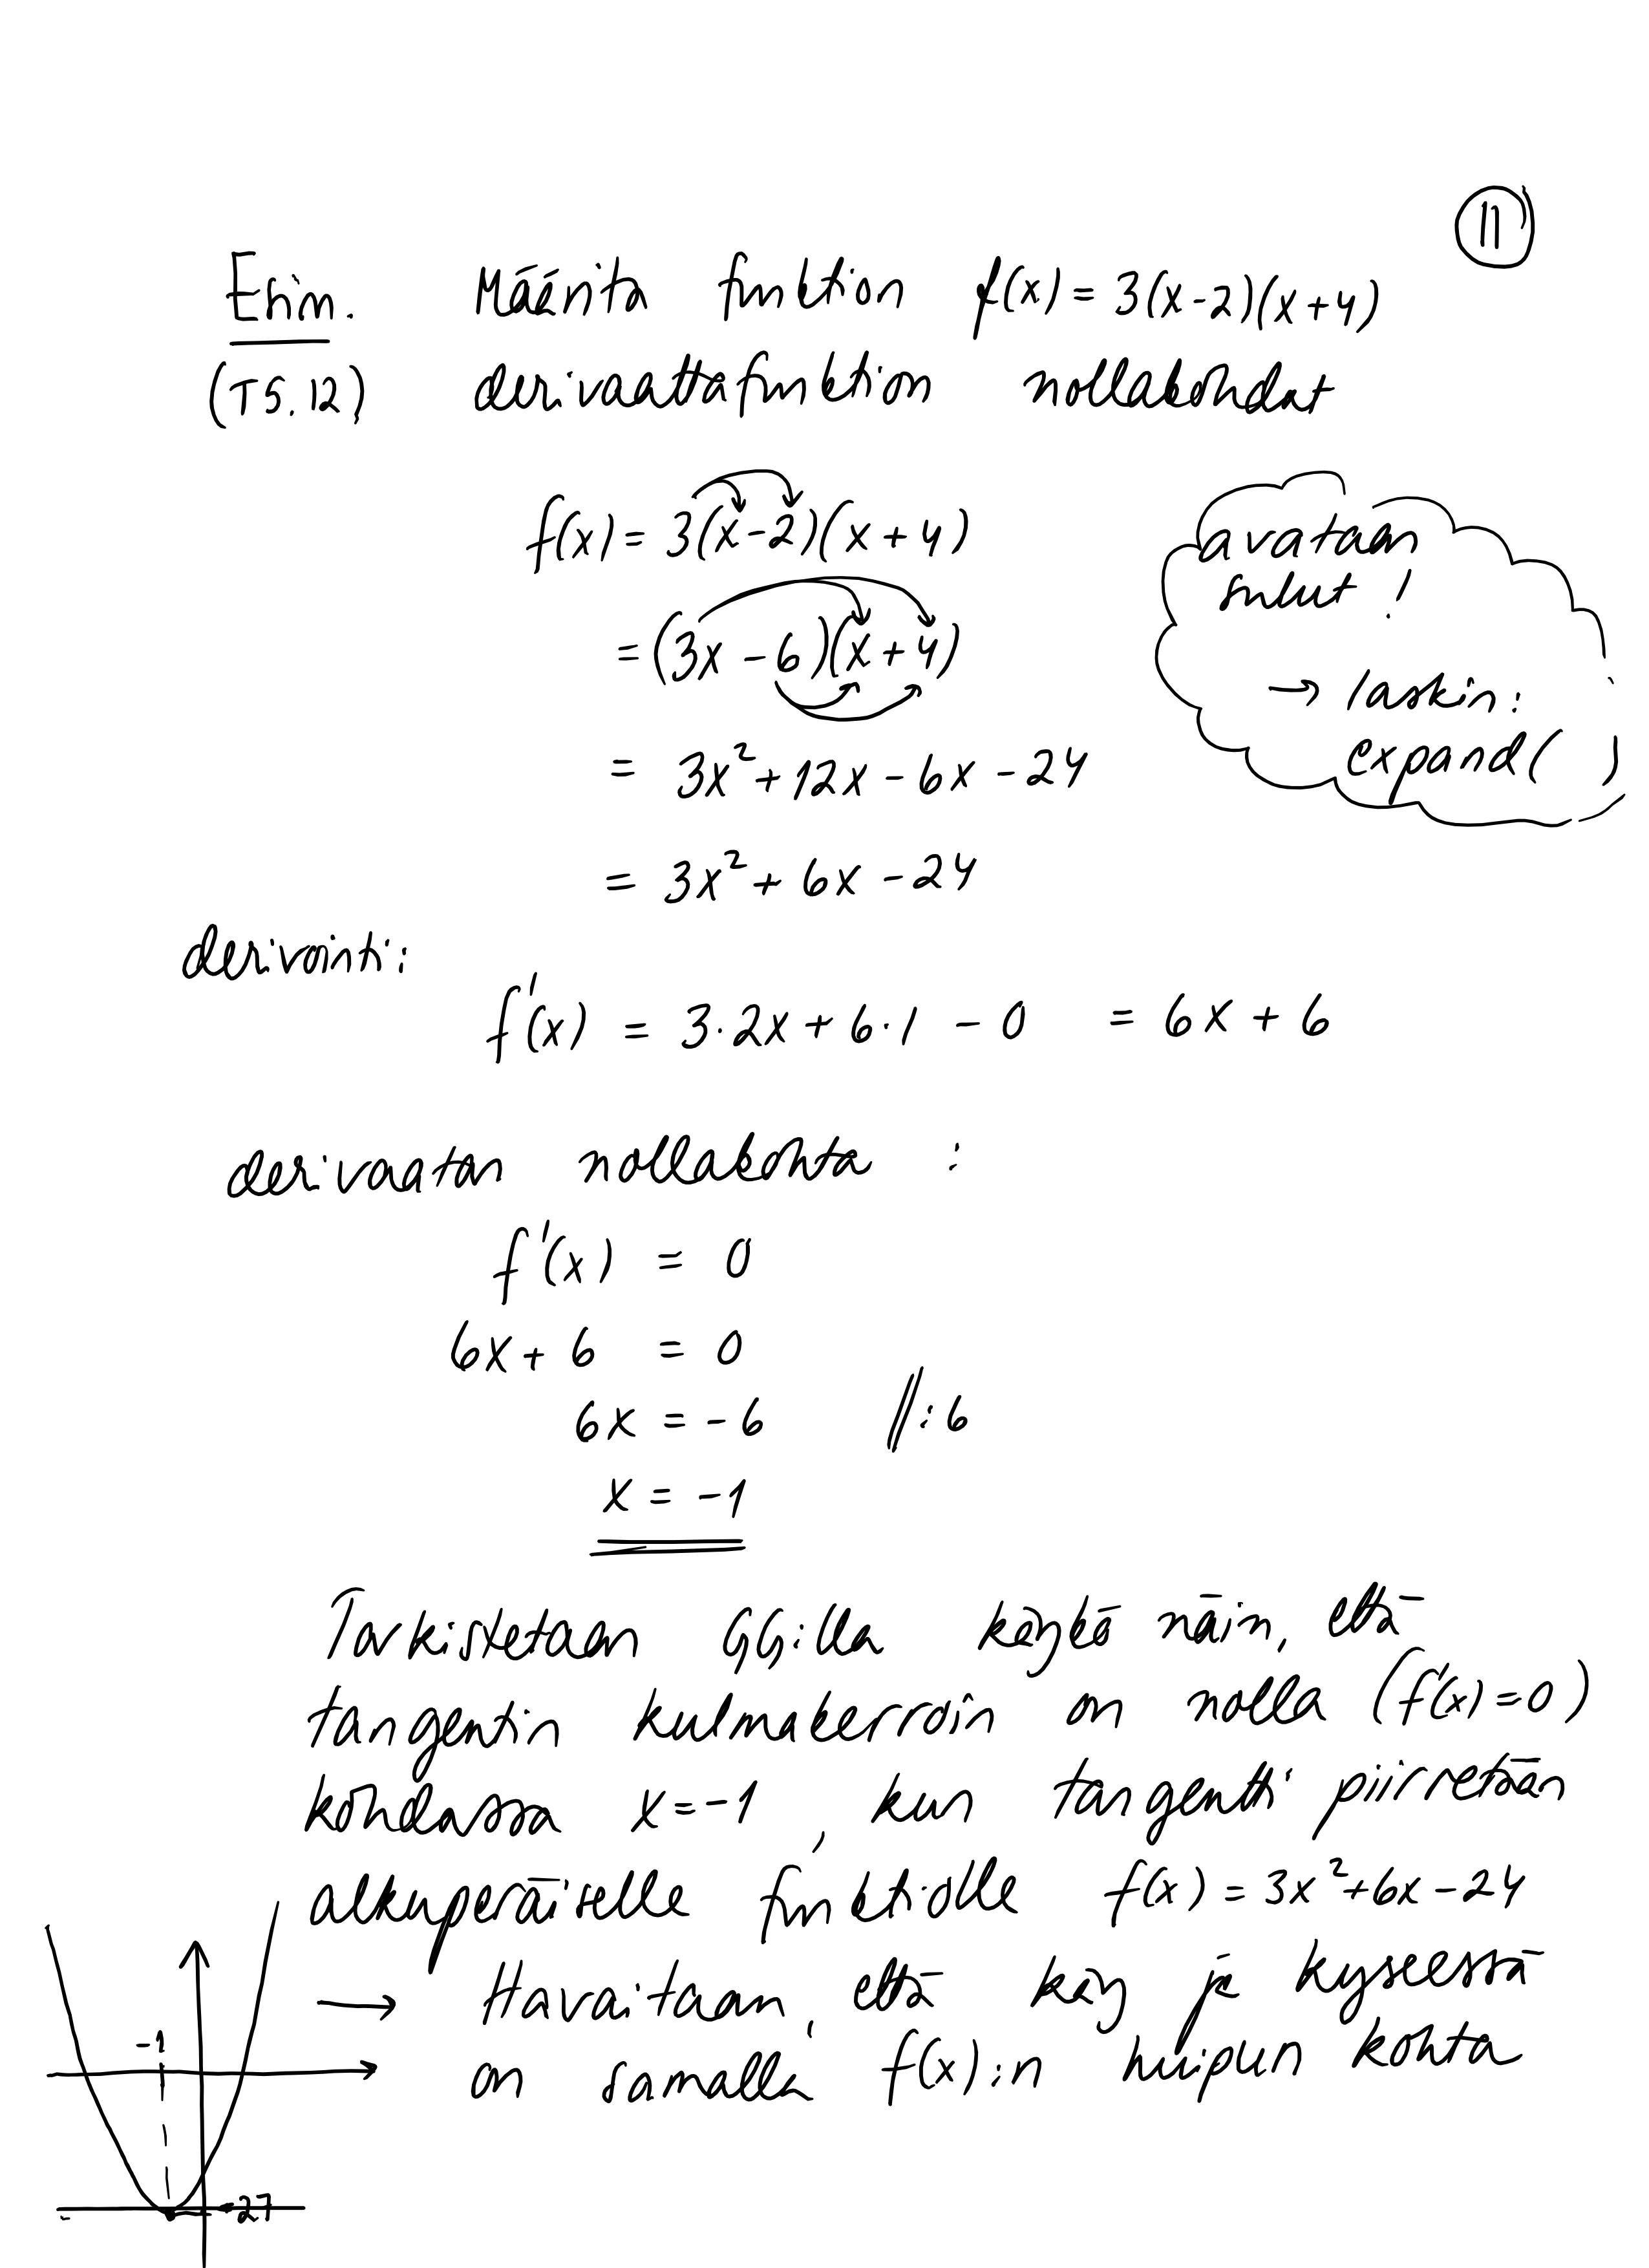 11
Esim. Määritä funktion f(x) = 3(x-2)(x+4)
(T5.12) derivaattafunktion nollakohdat
f(x) = 3(x-2)(x+4)
= (3x - 6)(x+4)
= 3x² + 12x - 6x - 24
= 3x² + 6x - 24
avataan
sulut!
→ laskin:
expand( )
derivointi:
f'(x) = 3·2x + 6·1 - 0 = 6x + 6
derivaatan nollakohta :
f'(x) = 0
6x + 6 = 0
6x = -6 //:6
x = -1
Tarkistetaan GG:lla käykö näin, että
tangentin kulmakerroin on nolla (f'(x)=0)
kohdassa x=-1, kun tangentti piirretään
alkuperäiselle funktiolle f(x) = 3x²+6x-24
→ Havaitaan, että käy ja kyseessä
on samalla f(x):n huipun kohta
-1
-27